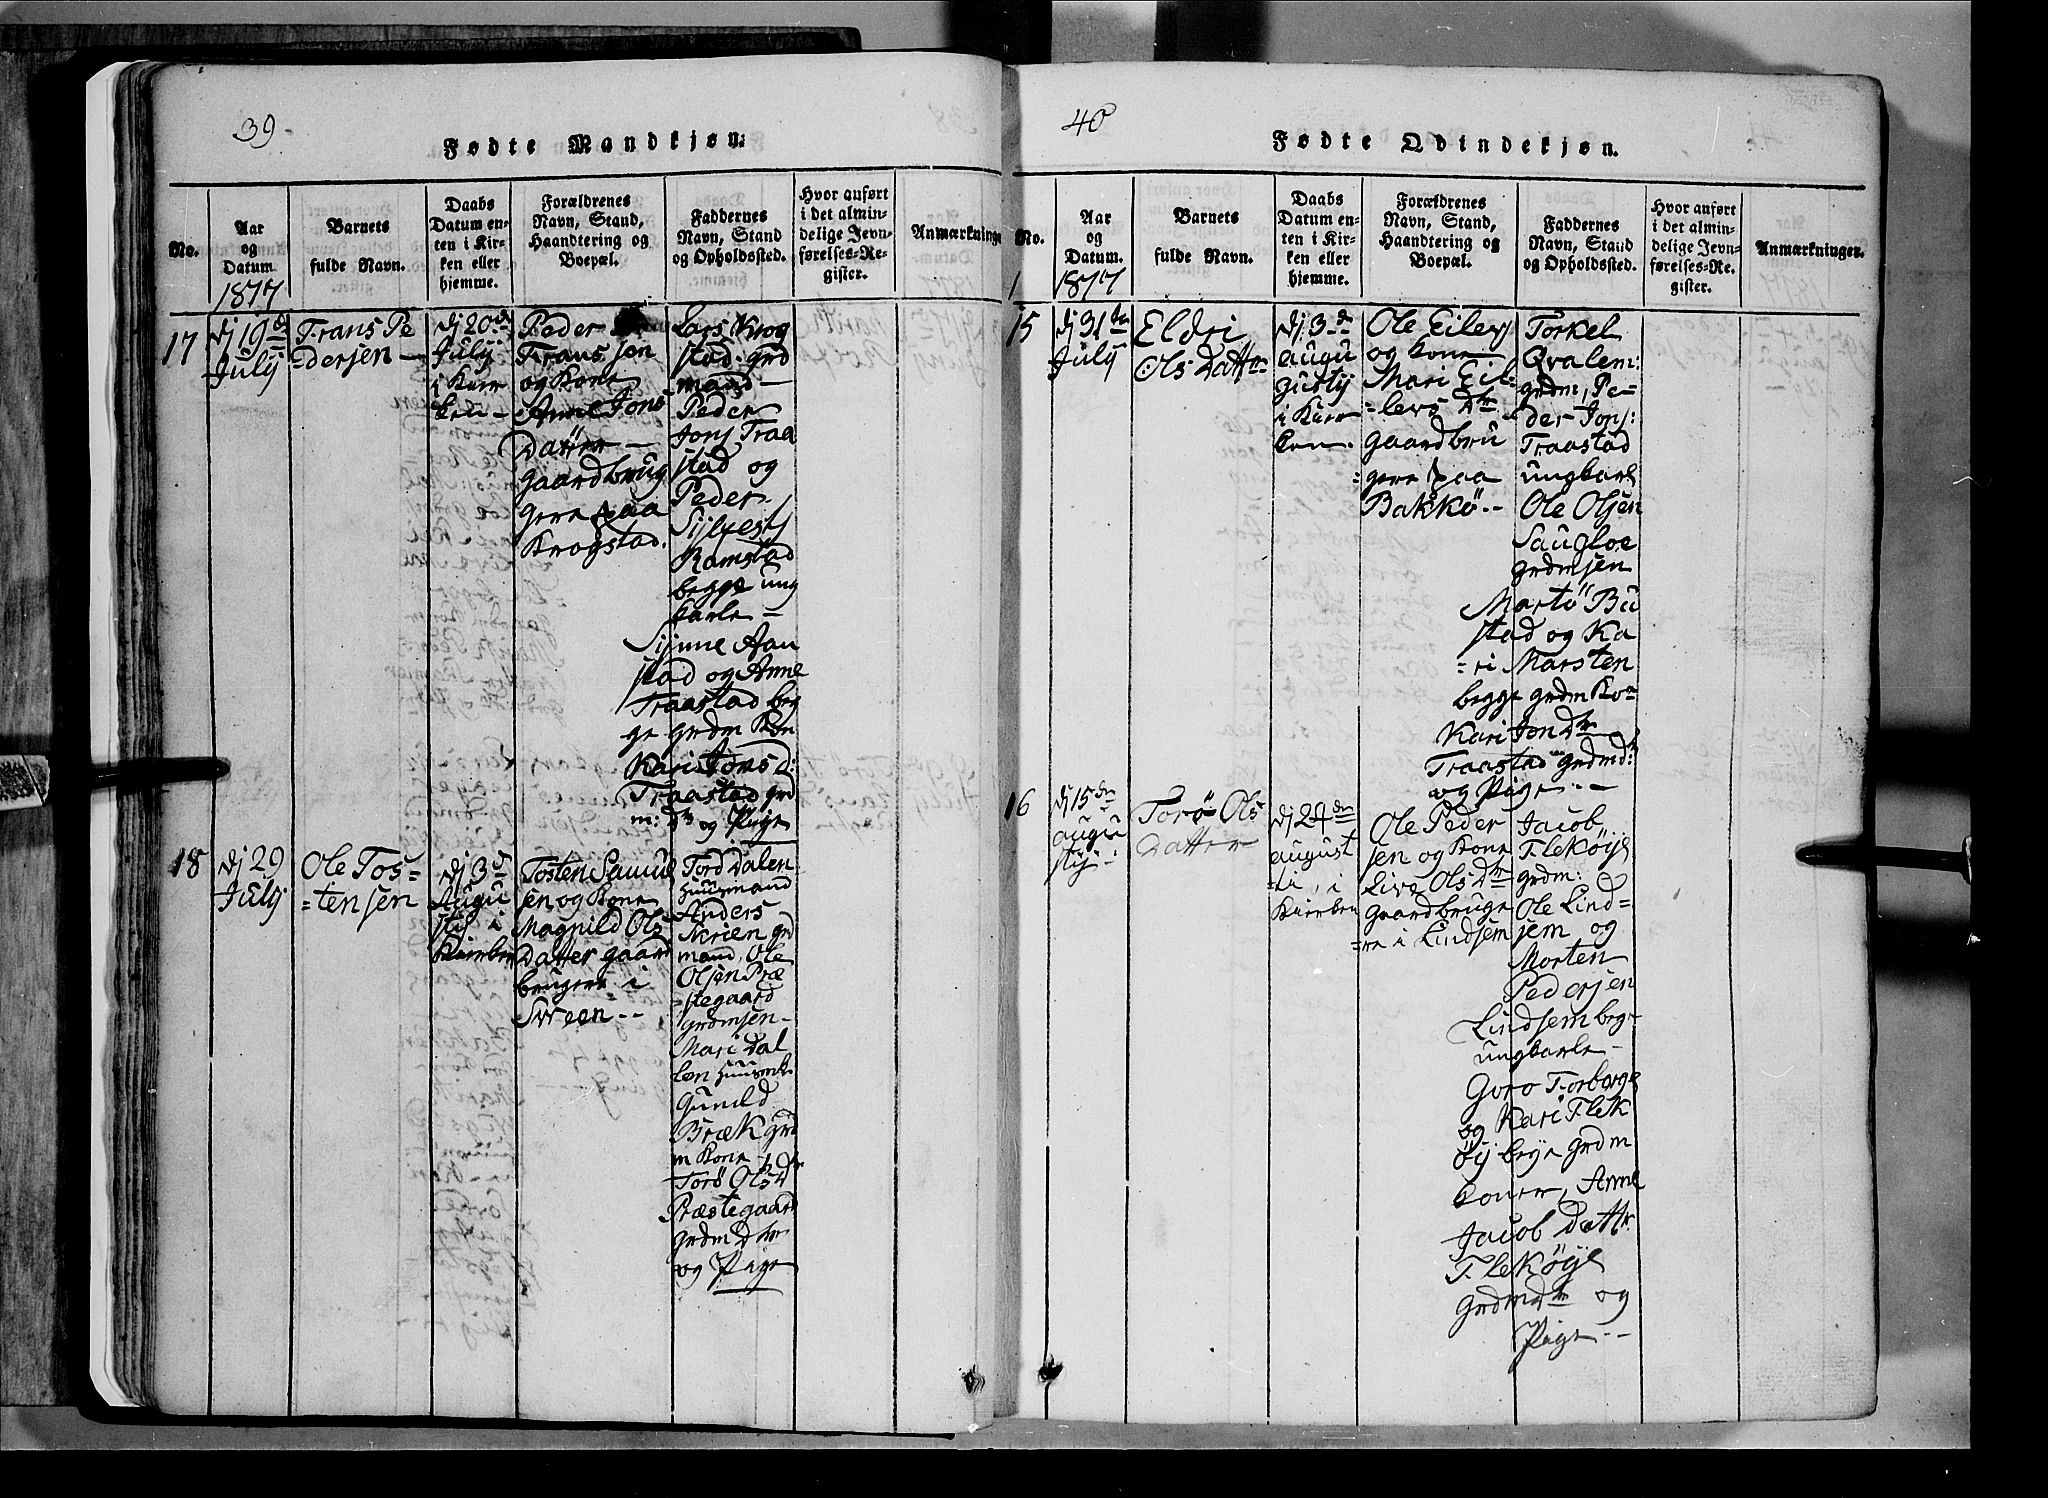 39.
Fødte Mandkjøn.
No.
Aar
og
Datum
1817
Barnets
fulde Navn.
Daabs
Datum en-
ten i Kir-
ken eller
hjemme.
Forældrenes
Navn, Stand,
Haandtering og
Boepæl.
Faddernes
Navn, Stand
og Opholdssted.
Hvor anført
i det almin-
delige Jevn-
førelses-Re-
gister.
Anmærkninge
17
Dj 19d
Julij
Frans Pe
=dersen
Dj 20d
Julij
i Kirr
ken -
Peder
Frans sen
og Kone
Anne Jons
Datter -
gaardbrug
gere paa
Krogstad.
Lars Krog
stad grd
mand -
Peder
Jons Traa
stad og
Peder
Sylvest
Ramstad
begge ung
karle =
Synne Aan
stad og Anne
Traastad beg
ge grdm Kon
Kari Jons d:
Traastad grd
m: d og Pige
18
Dj 29
Julij
Ole Tos-
=tensen
Dj 3d
Augu
stij i
Kirken
Tosten Samul
sen og Kone
Magnild Ols
Datter gaard
brugere i
Sveen --
Tord Dalen
Huusmand
Anders
Skrien grd
mand, Ole
Olsen Præ
stegaard
grdmsen -
Mari Dal
len
Gunild
Bræk grd
m Kone -
Torø Ols Dtr
Præstegaard
grdm Dtr
og Pige
40
Fødte Qvindekjøn.
No.
1
Aar
og
Datum.
1817
Barnets
fulde Navn.
Daabs
Datum en-
ten i Kir-
ken eller
hjemme.
Forældrenes
Navn, Stand,
Haandtering og
Boepæl.
Faddernes
Navn, Stand
og Opholdssted.
Hvor anført
i det almin-
delige Jevn-
førelses-Re-
gister.
Anmærkninger.
15
Dj 31te
Julij
Eldri
Ols Datter
Dj 3d
augu
gustij
i Kirr
ken.
Ole Eilevs
og Kone
Mari Eil=
=levs Dtr
gaardbru
=gere paa
Bakkö --
Torkel
Qvalem:
grdm, Pe=
der Jons:
Traastad
ungkarl
Ole Olsen
Saugloe
grdmsen
Martö Bu
stad og Ka
=ri Marsten
begge grdm Ko=
Kari Jon Dtr
Traastad grdmd:
og Pige --
16
Dj 15de
augu
stij -
Torö Ols
Datter
Dj 24de
august
=ti, i
Kirrken
Ole Peder
sen og Kone
Live Ols Dtr
gaardbruge
=re i Lindsem
Jacob
Flekøye
grdm:
Ole Lind=
sem og
Morten
Pedersen
Lindsem beg=
ungkarle -
Goro Torberge
og Kari Flek
öij begge grdm
koner, Anne
Jacob Dattr
Flekøye
grdmdtr og
Pige --